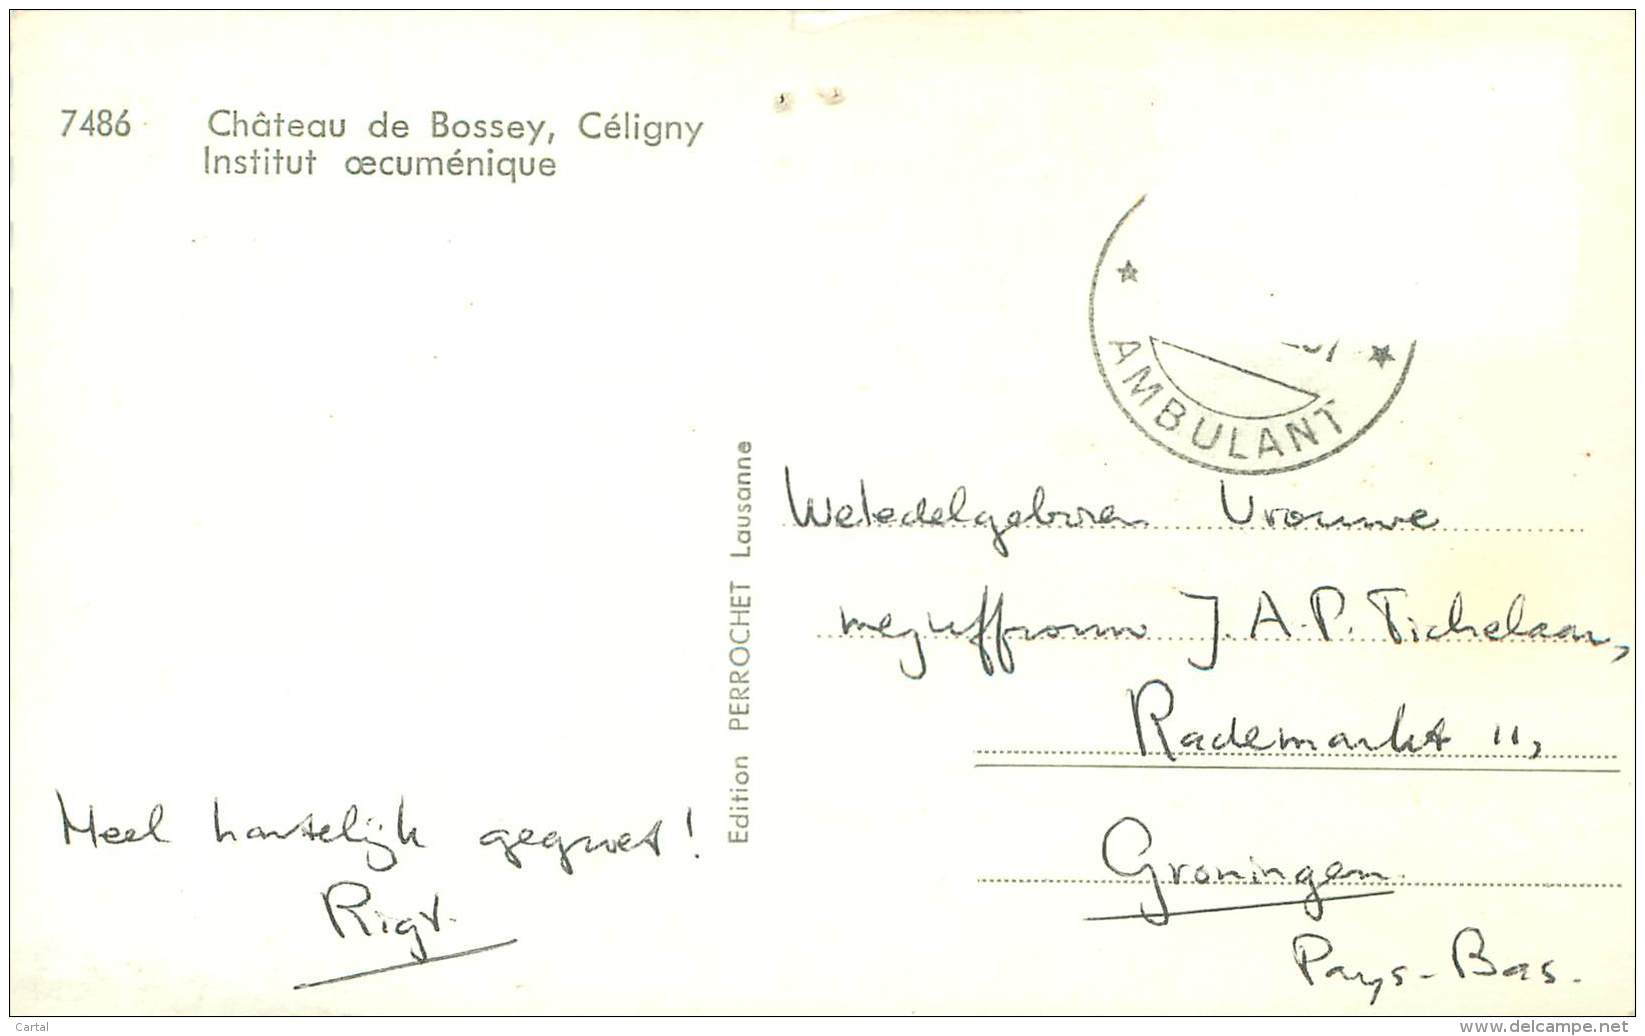 7486 Château de Bossey, Céligny
Institut œcuménique
AMBULANT
Edition PERROCHET Lausanne
Weledelgeboren Vrouwe
mejuffrouw J.A.P. Tichelaar,
Rademarkt 11,
Groningen
Pays-Bas.
Heel hartelijk gegroet!
Cartal
www.delcampe.net